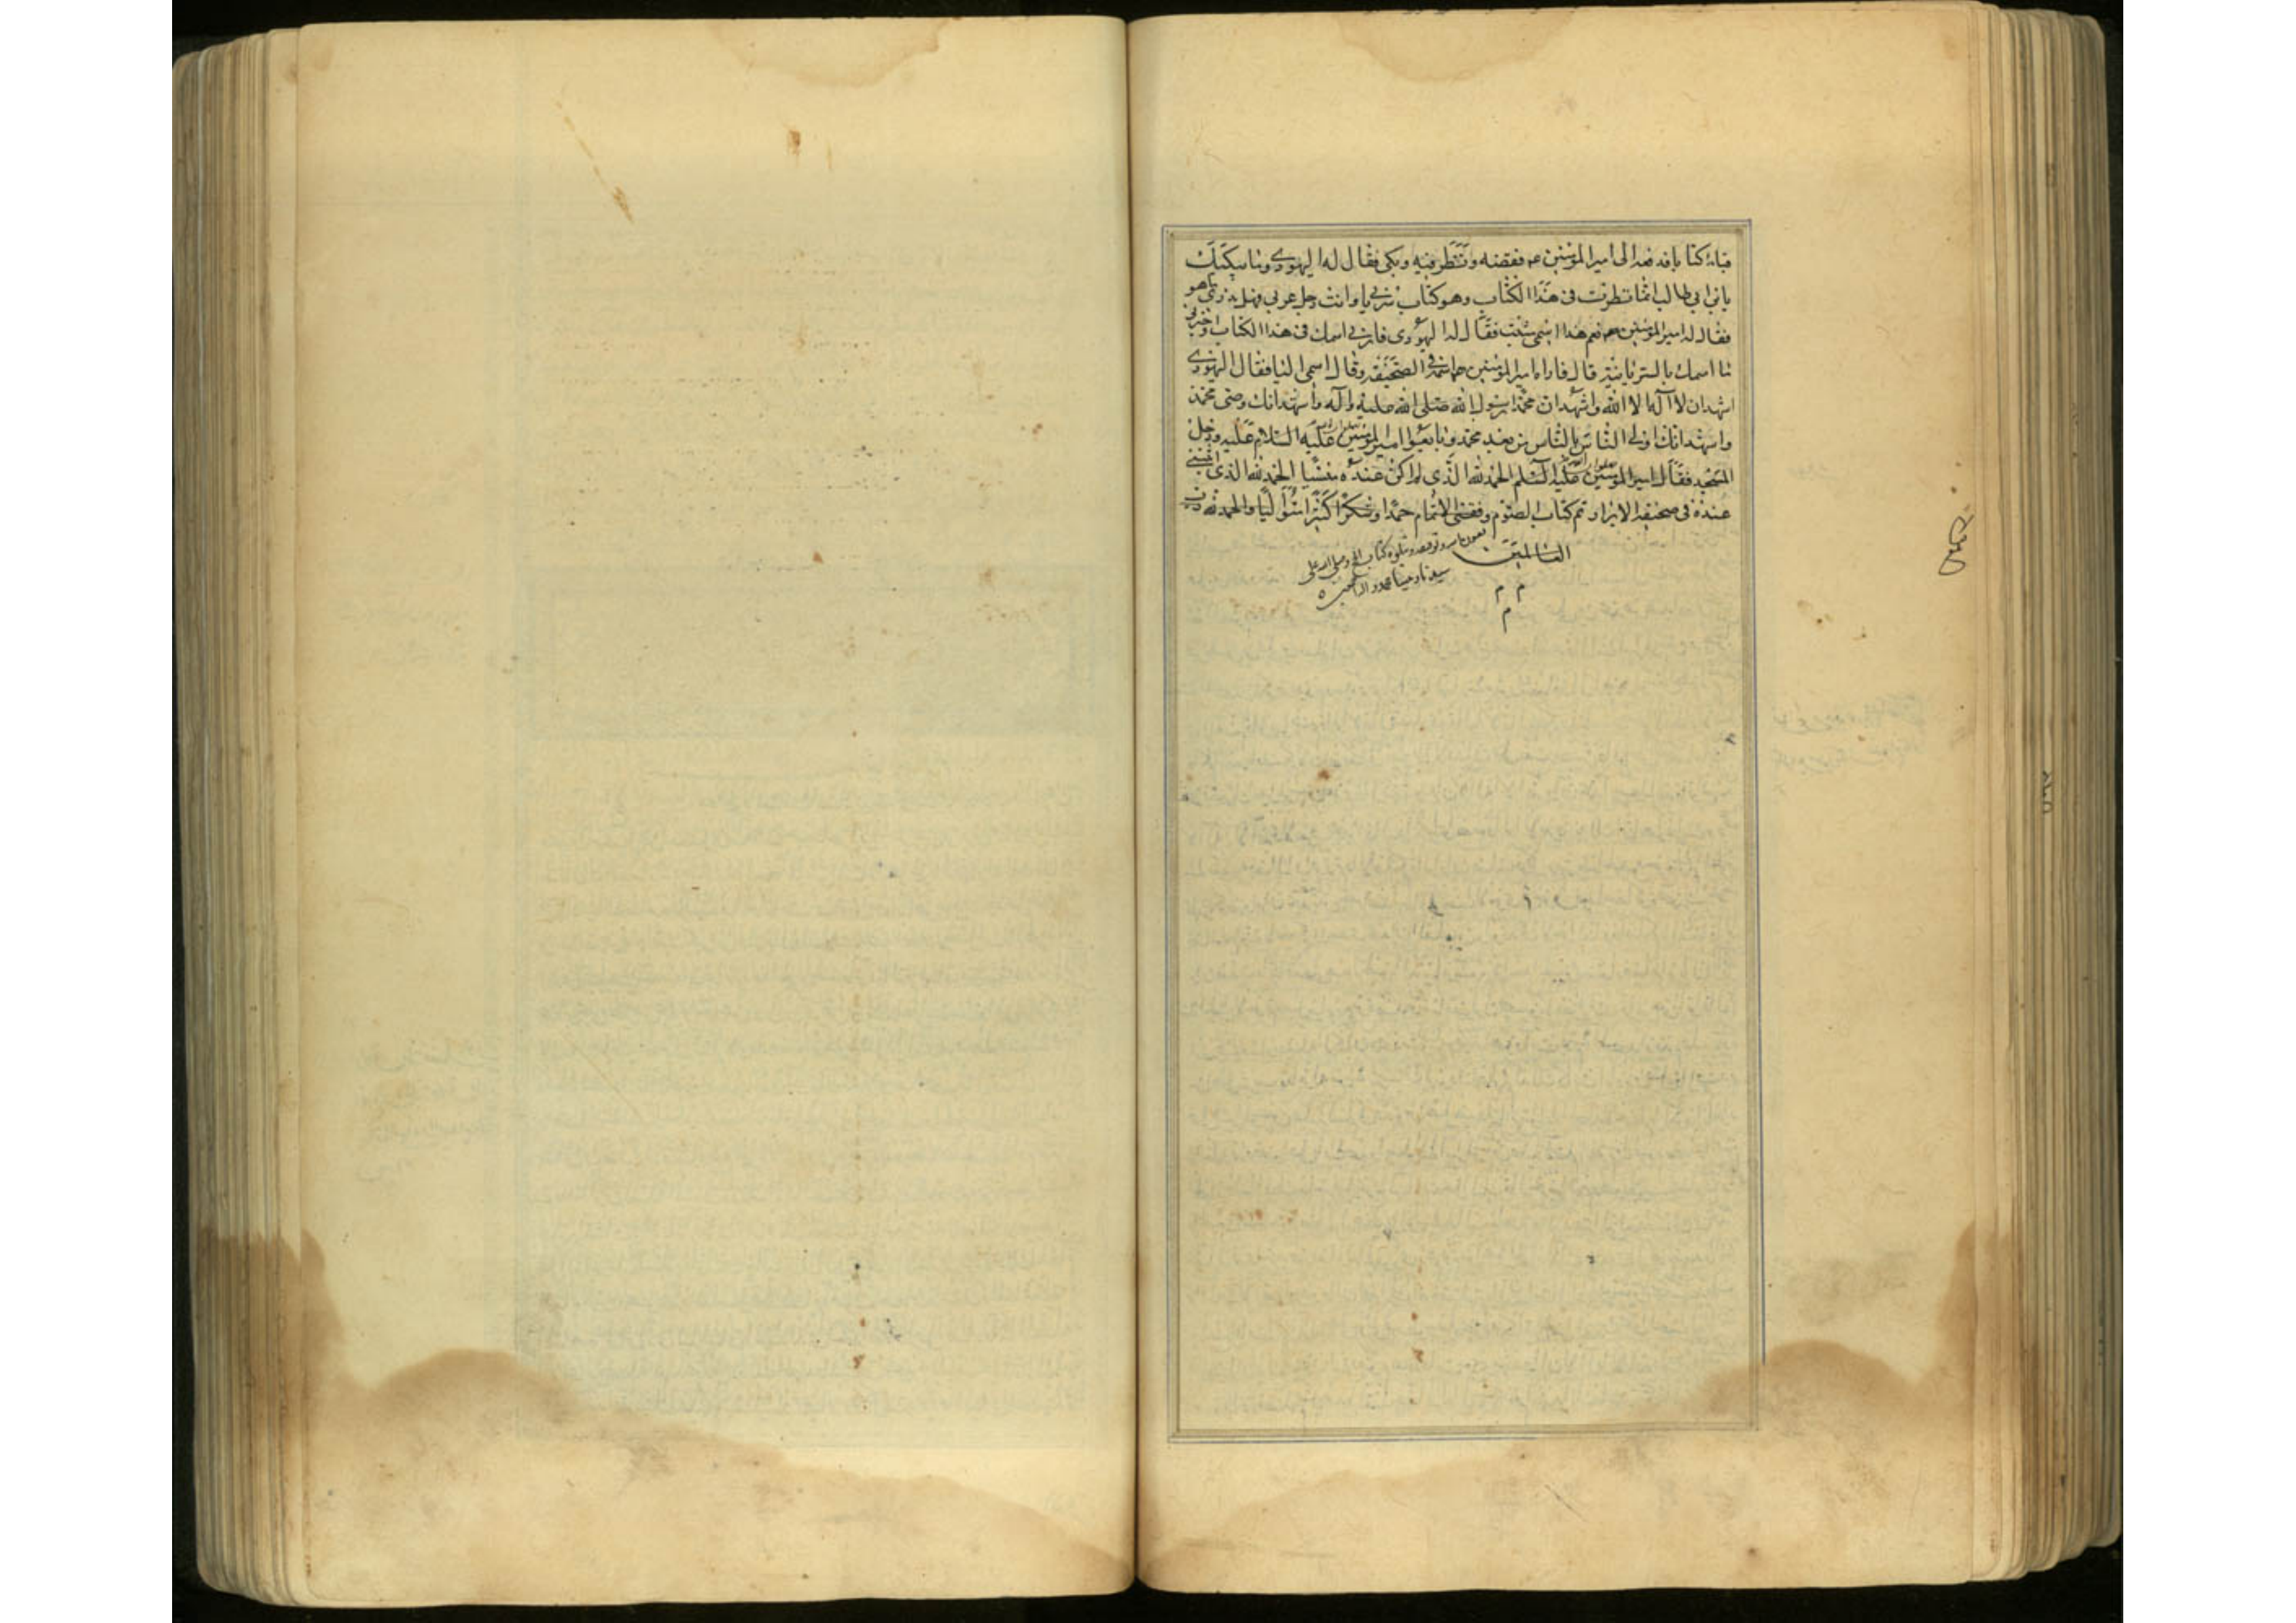 قباءه كتابا فدفعه الى امير المؤمنين ع ففضه ونظر فيه وبكى فقال له اليهودي وما يبكيك
يا بن ابي طالب انما نظرت في هذا الكتاب وهو كتاب سرياني وانت رجل عربي فهل تدري ما هو
فقال له امير المؤمنين ع نعم هذا اسمي مثبت فقال له اليهودي فارني اسمك في هذا الكتاب واخبرني
ما اسمك بالسريانية قال فاراه امير المؤمنين اسمه في الصحيفة وقال اسمي اليا فقال اليهودي
اشهد ان لا اله الا الله واشهد ان محمدا رسول الله صلى الله عليه واله واشهد انك وصي محمد
واشهد انك اولى الناس بالناس من بعد محمد وبايعوا امير المؤمنين عليه السلام ودخل
المسجد فقال امير المؤمنين عليه السلم الحمد لله الذي لم اكن عنده منسيا الحمد لله الذي اثبتني
عنده في صحيفة الابرار تم كتاب الصوم وفقني لاتمام حمدا وشكرا كثيرا متواليا والحمد لله رب
العالمين
م م
م
بعون الله وتوفيقه ويتلوه كتاب الحج وصلى الله على
سيدنا ونبينا محمد واله